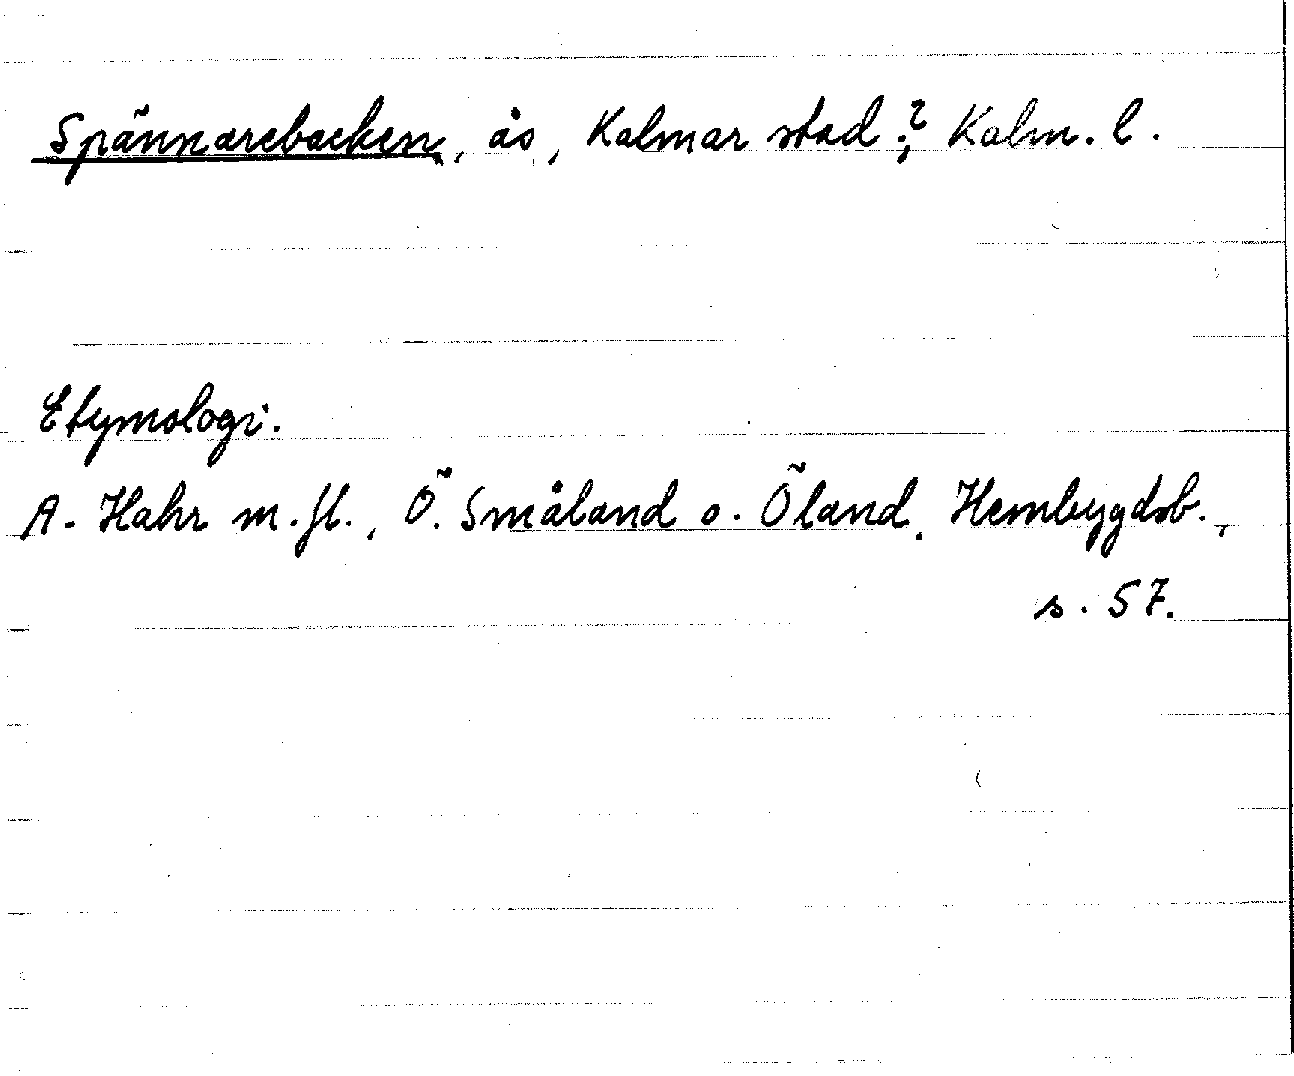 Spännarebacken, ås, Kalmar stad?, Kalm. l.
Etymologi.
A. Hahr m. fl., Ö. Småland o. Öland. Hembygdsb.,
s. 57.